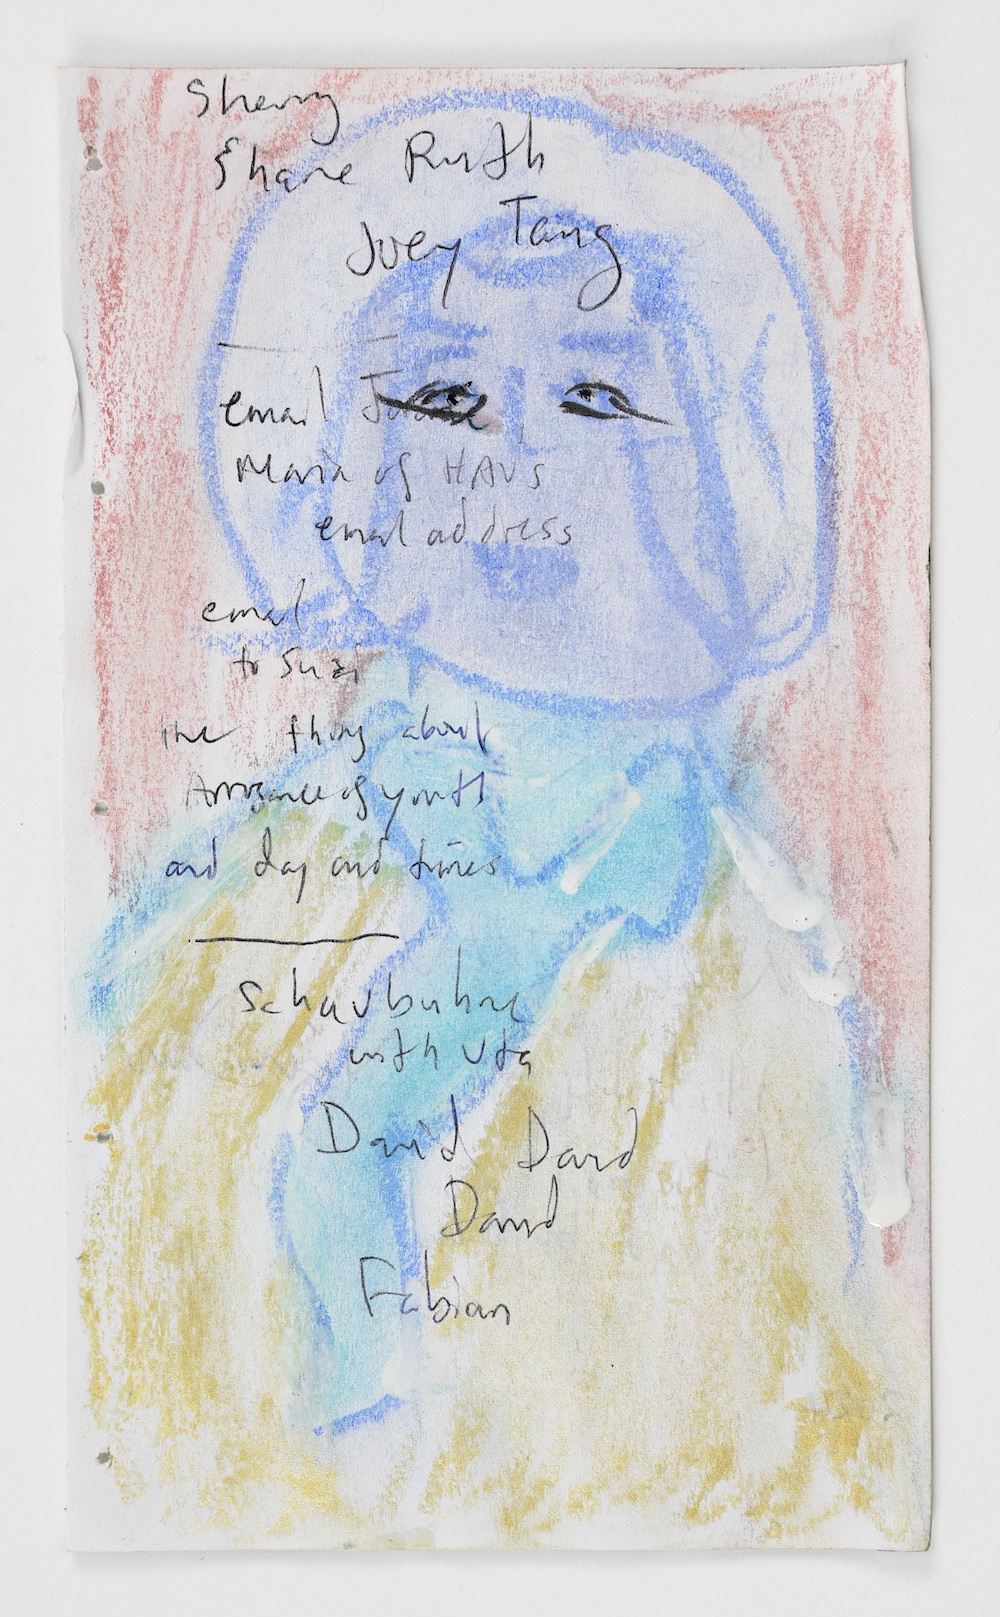 Sherry
Shane Ruth
Joey Tang
email
Maria of HAUS
email address
email
to Suzi
the thing about
Arrogance of youth
and day and times
Schaubuhne
with Uta
David David
David
Fabian